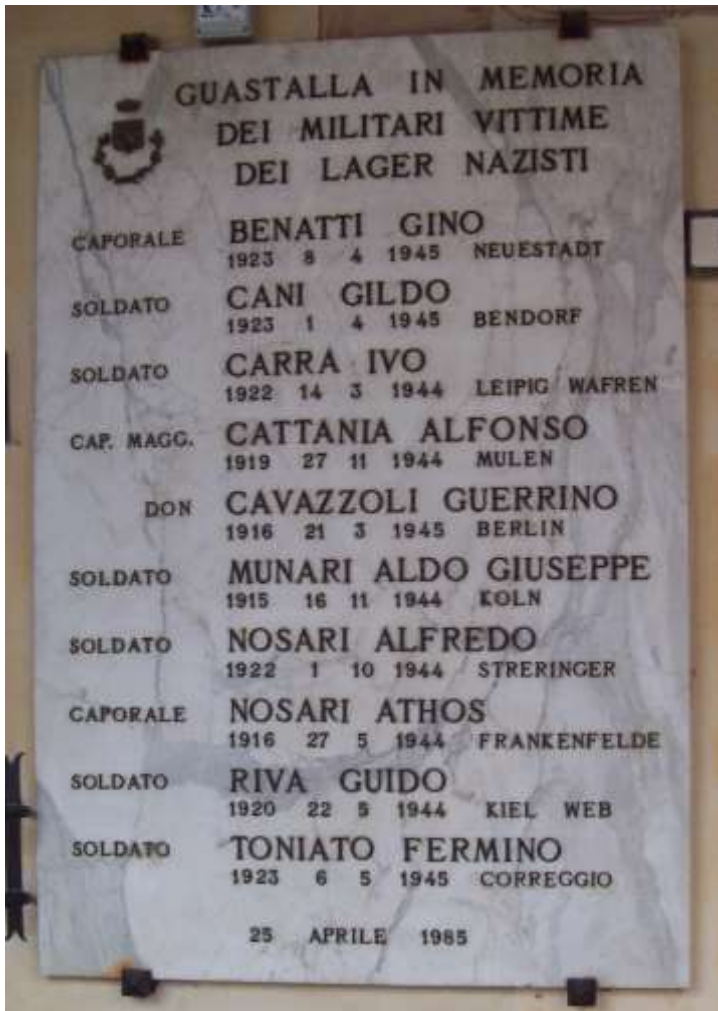 GUASTALLA IN MEMORIA
DEI MILITARI VITTIME
DEI LAGER NAZISTI
CAPORALE BENATTI GINO
1923 8 4 1945 NEUESTADT
SOLDATO CANI GILDO
1923 1 4 1945 BENDORF
SOLDATO CARRA IVO
1922 14 3 1944 LEIPIG WAFREN
CAP. MAGG. CATTANIA ALFONSO
1919 27 11 1944 MULEN
DON CAVAZZOLI GUERRINO
1916 21 3 1945 BERLIN
SOLDATO MUNARI ALDO GIUSEPPE
1915 16 11 1944 KOLN
SOLDATO NOSARI ALFREDO
1922 1 10 1944 STRERINGER
CAPORALE NOSARI ATHOS
1916 27 5 1944 FRANKENFELDE
SOLDATO RIVA GUIDO
1920 22 5 1944 KIEL WEB
SOLDATO TONIATO FERMINO
1923 6 5 1945 CORREGGIO
25 APRILE 1985